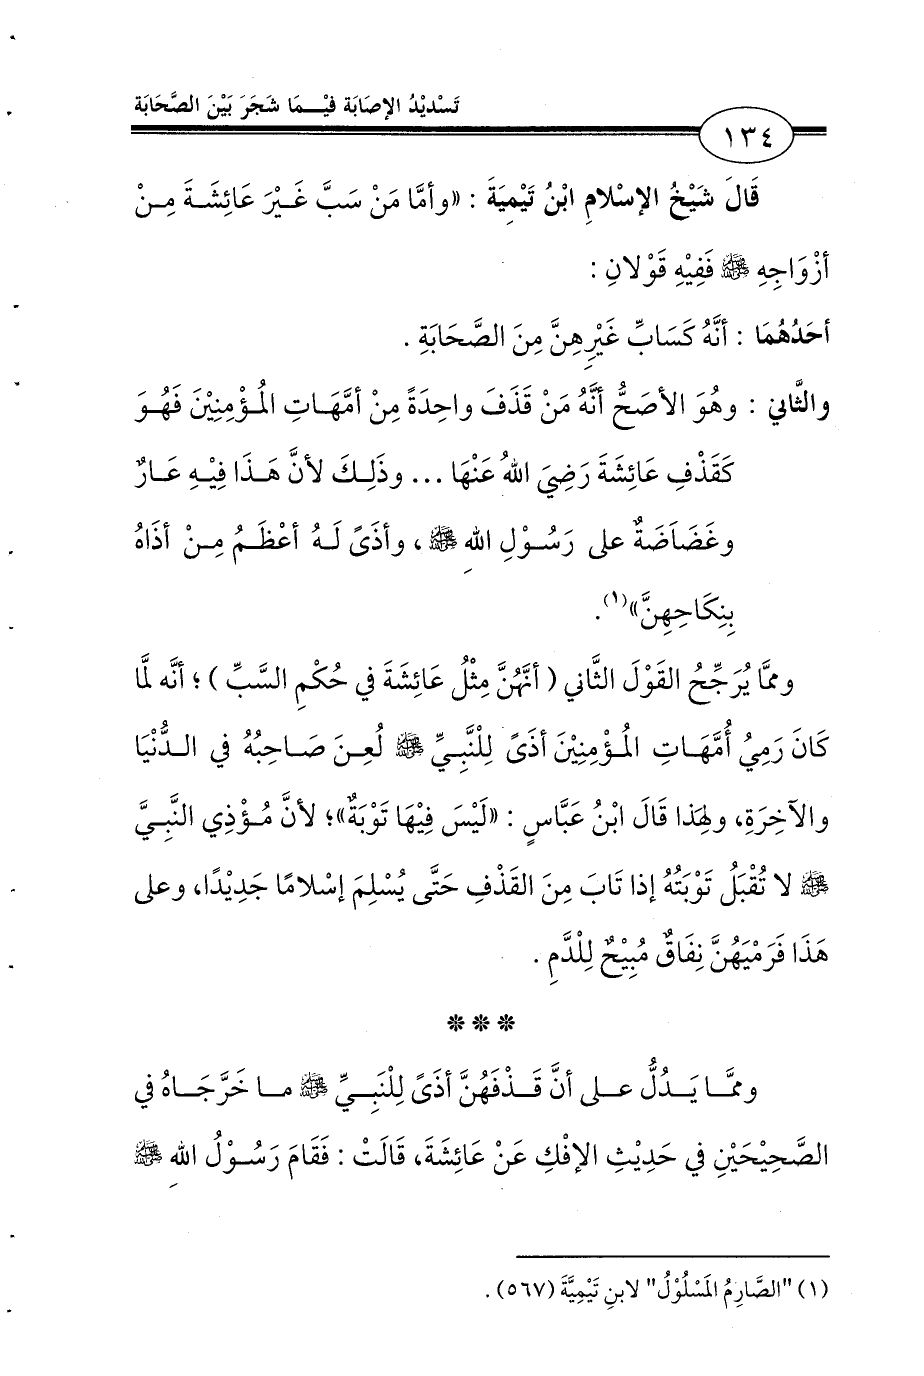 تَسْدِيْدُ الإصَابَة فيْـمَا شَجَرَ بَيْنَ الصَّحَابَة
١٣٤
قَالَ شَيْخُ الإسْلامِ ابْنُ تَيْمِيَةَ : «وأمَّا مَنْ سَبَّ غَيْرَ عَائِشَةَ مِـنْ
أزْوَاجِهِ ﷺ فَفِيْهِ قَوْلانِ :
أحَدُهُمَا : أنَّهُ كَسَابِّ غَيْرِهِنَّ مِنَ الصَّحَابَةِ .
والثَّاني : وهُوَ الأصَحُّ أنَّهُ مَنْ قَذَفَ واحِدَةً مِنْ أمَّهَاتِ المُؤْمِنِيْنَ فَهُوَ
كَقَذْفِ عَائِشَةَ رَضِيَ اللهُ عَنْهَا ... وذَلِكَ لأنَّ هَذَا فِيْهِ عَارٌ
وغَضَاضَةٌ على رَسُوْلِ اللهِ ﷺ، وأذَىً لَهُ أعْظَمُ مِـنْ أذَاهُ
بِنِكَاحِهِنَّ»(١).
وممَّا يُرَجِّحُ القَوْلَ الثَّاني ( أنَّهُنَّ مِثْلُ عَائِشَةَ في حُكْمِ السَّبِّ ) ؛ أنَّه لمَّا
كَانَ رَمِيُ أُمَّهَاتِ المُؤْمِنِيْنَ أذَىً لِلْنَبِيِّ ﷺ لُعِنَ صَاحِبُهُ في الدُّنْيَا
والآخِرَةِ، ولهَذا قَالَ ابْنُ عَبَّاسٍ : «لَيْسَ فِيْهَا تَوْبَةٌ»؛ لأنَّ مُؤْذِي النَّبِيَّ
ﷺ لا تُقْبَلُ تَوْبَتُهُ إذا تَابَ مِنَ القَذْفِ حَتَّى يُسْلِمَ إسْلامًا جَدِيْدًا، وعلى
هَذَا فَرَمْيَهُنَّ نِفَاقٌ مُبِيْحٌ لِلْدَّمِ .
* * *
وممَّـا يَـدُلُّ عـلى أنَّ قَـذْفَهُنَّ أذَىً لِلْنَبِـيِّ ﷺ مـا خَرَّجَـاهُ في
الصَّحِيْحَيْنِ في حَدِيْثِ الإفْكِ عَنْ عَائِشَةَ، قَالَتْ : فَقَامَ رَسُوْلُ اللهِ ﷺ
(١) "الصَّارِمُ المَسْلُوْلُ" لابنِ تَيْمِيَّةَ (٥٦٧) .